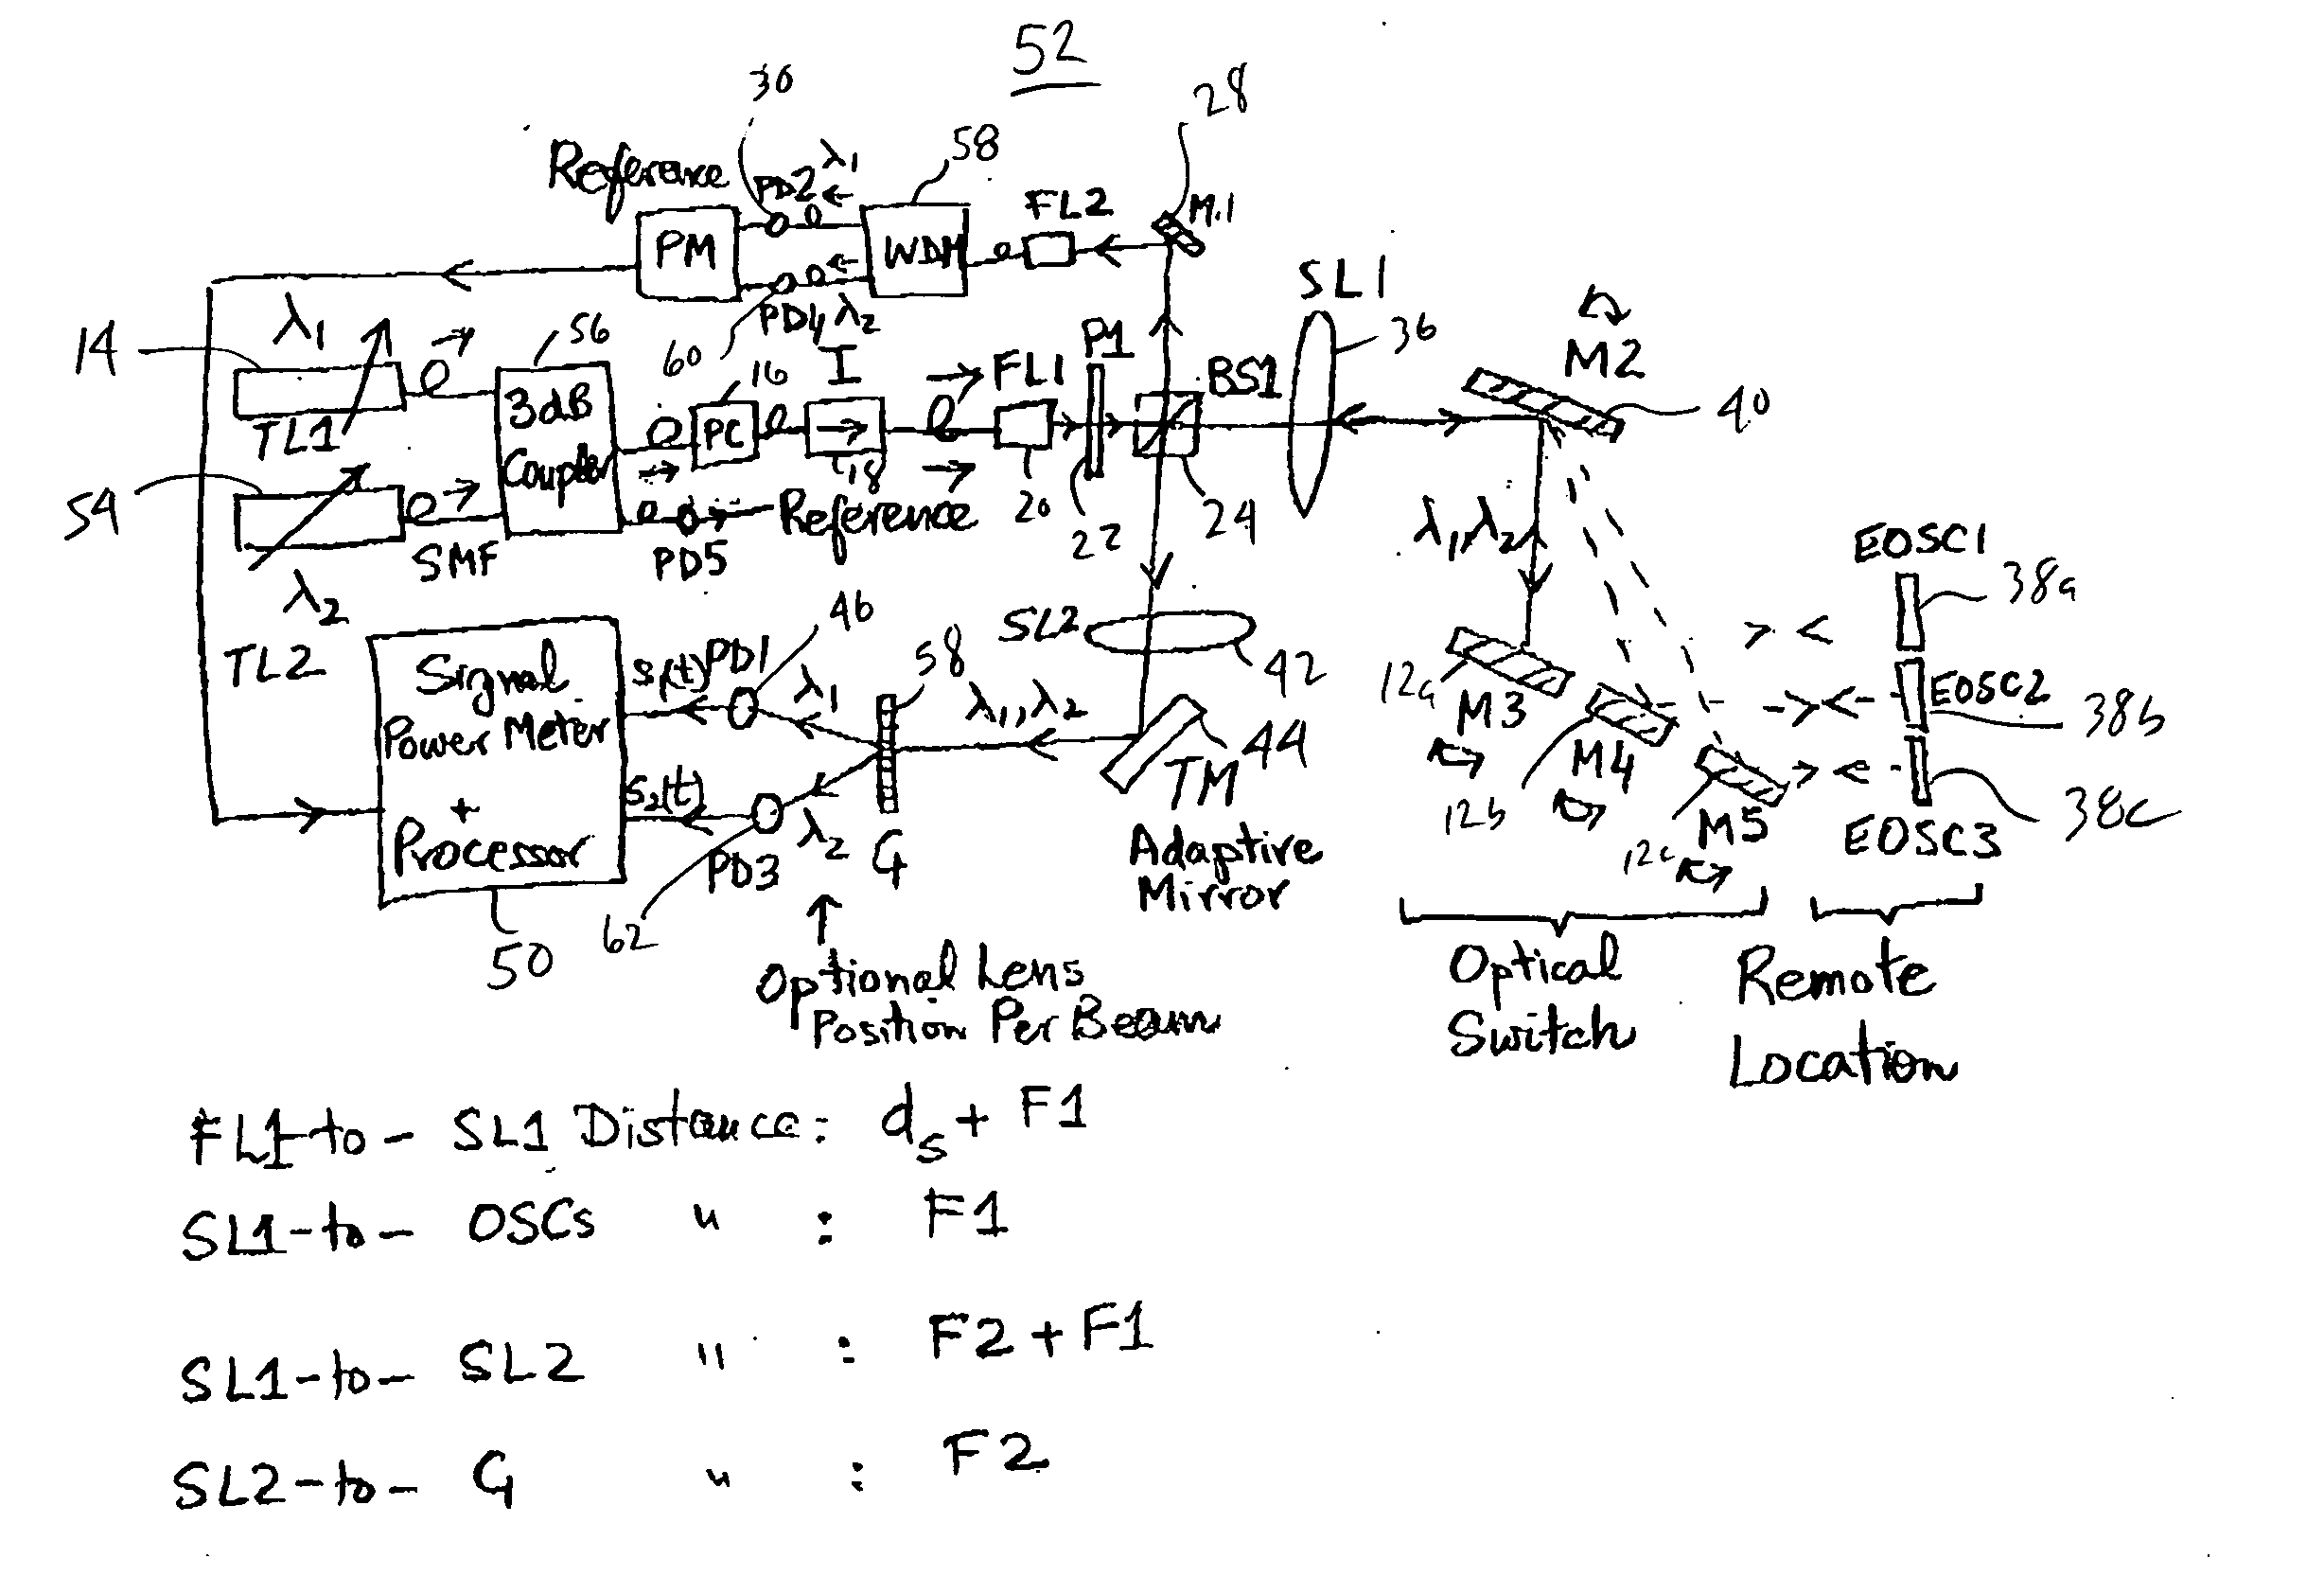 52
30
28
58
Reference
PD2 λ1
FL2
M.1
PM
WDM
SL1
λ1
14
56
60
PD4 λ2
P1
36
M2
16
I
FL1
BS1
40
TL1
3dB
Coupler
PC
18
20
22
24
54
SMF
PD5
Reference
λ1, λ2
EOSC1
38a
λ2
TL2
46
SL2
42
Signal
Power Meter
+
Processor
S1(t)
PD1
λ1
58
λ1, λ2
12a
M3
EOSC2
38b
44
TM
Adaptive
Mirror
M4
12b
M5
12c
EOSC3
38c
S2(t)
PD3
λ2
G
50
62
Optional Lens
Position Per Beam
Optical
Switch
Remote
Location
FL1-to- SL1 Distance: ds + F1
SL1-to- OSCs " : F1
SL1-to- SL2 " : F2 + F1
SL2-to- G " : F2